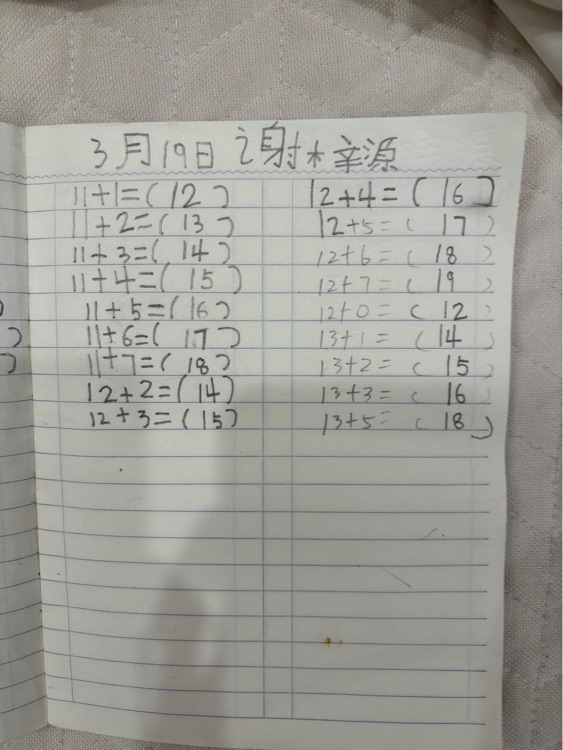 3月19日 谢梓源
11+1=(12)
11+2=(13)
11+3=(14)
11+4=(15)
11+5=(16)
11+6=(17)
11+7=(18)
12+2=(14)
12+3=(15)
12+4=(16)
12+5=(17)
12+6=(18)
12+7=(19)
12+0=(12)
13+1=(14)
13+2=(15)
13+3=(16)
13+5=(18)